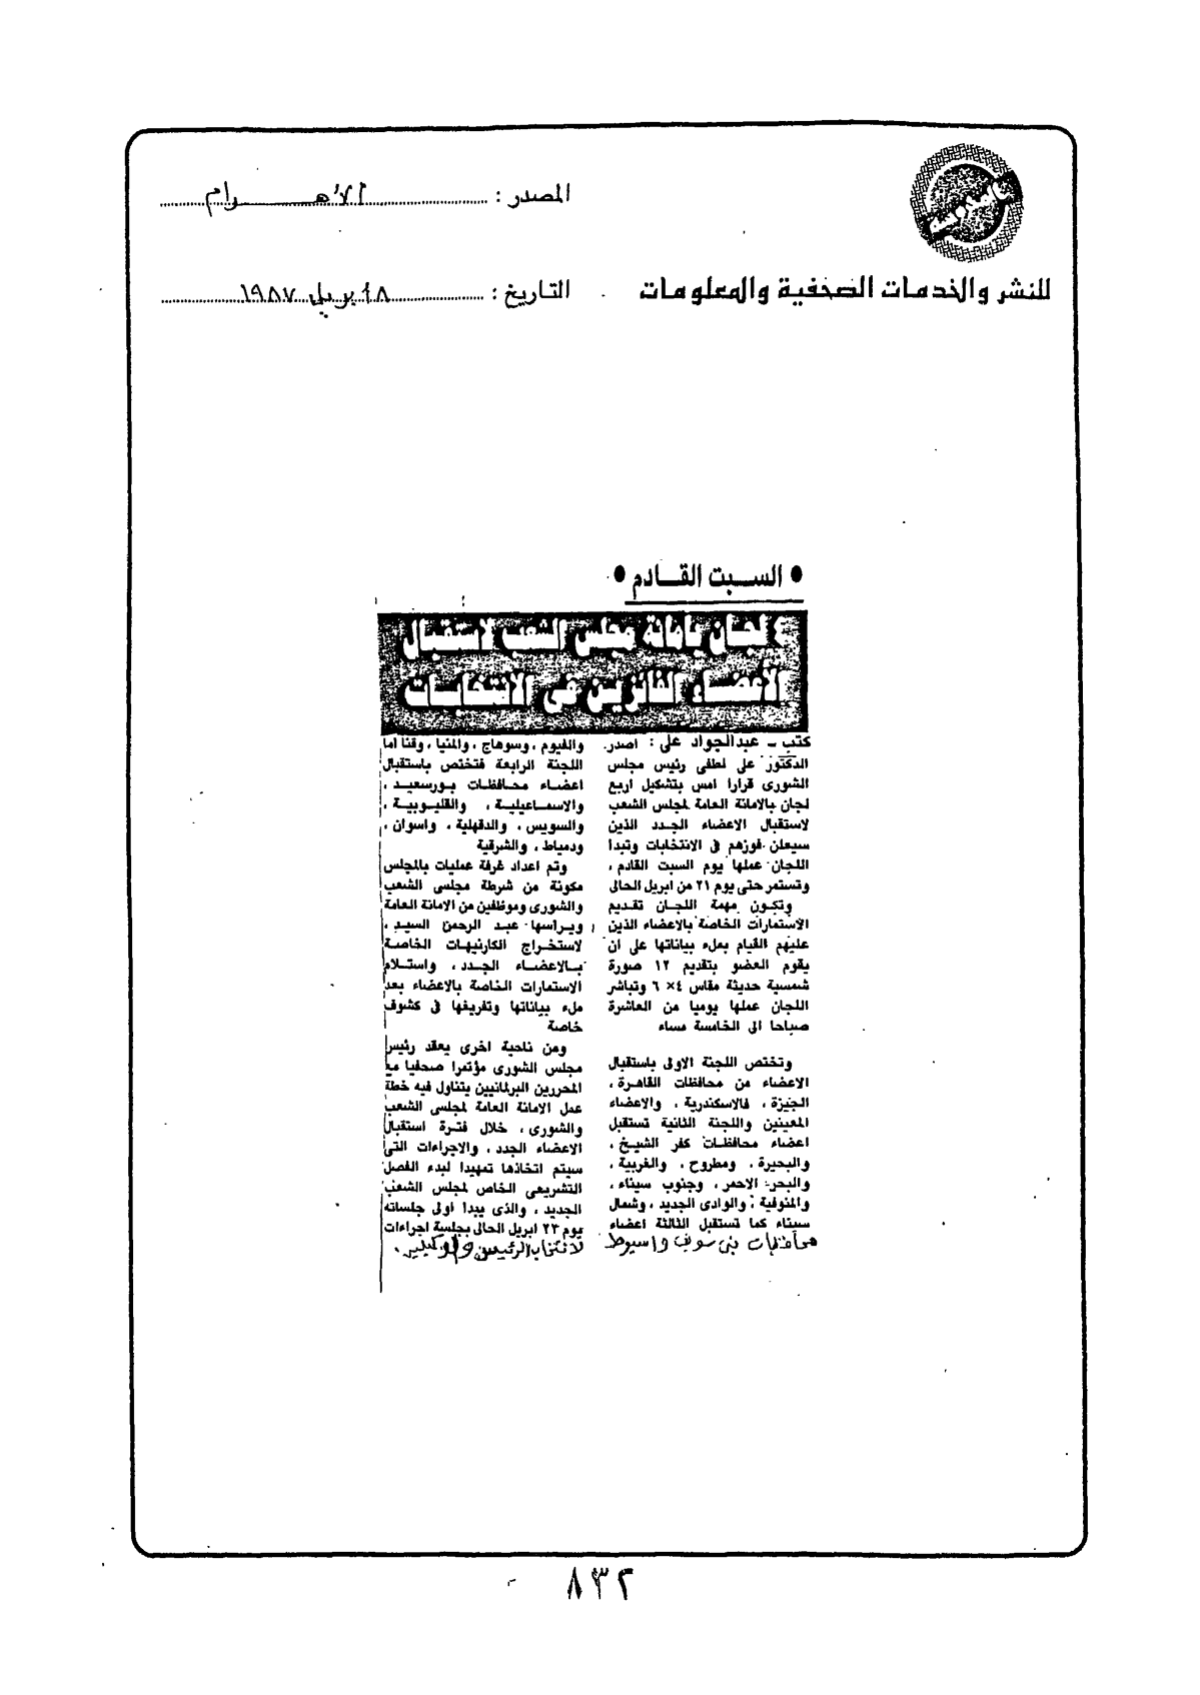 المصدر : الأهـــرام
للنشر والخدمات الصحفية والمعلومات
التاريخ : ٨ ابريل ١٩٨٧
● السبت القادم ●
٤ لجان بأمانة مجلس الشعب لاستقبال
الأعضاء الفائزين فى الانتخابات
كتب ـ عبدالجواد على : اصدر
الدكتور على لطفى رئيس مجلس
الشورى قرارا امس بتشكيل اربع
لجان بالامانة العامة لمجلس الشعب
لاستقبال الاعضاء الجدد الذين
سيعلن فوزهم فى الانتخابات وتبدا
اللجان عملها يوم السبت القادم ،
وتستمر حتى يوم ٢١ من ابريل الحالى
وتكون مهمة اللجان تقديم
الاستمارات الخاصة بالاعضاء الذين
عليهم القيام بملء بياناتها على ان
يقوم العضو بتقديم ١٢ صورة
شمسية حديثة مقاس ٤× ٦ وتباشر
اللجان عملها يوميا من العاشرة
صباحا الى الخامسة مساء
وتختص اللجنة الاولى باستقبال
الاعضاء من محافظات القاهرة ،
الجيزة ، فالاسكندرية ، والاعضاء
المعينين واللجنة الثانية تستقبل
اعضاء محافظات كفر الشيخ ،
والبحيرة ، ومطروح ، والغربية ،
والبحر الاحمر ، وجنوب سيناء ،
والمنوفية ، والوادى الجديد ، وشمال
سيناء كما تستقبل الثالثة اعضاء
محافظات بنى سويف واسيوط
والفيوم ، وسوهاج ، والمنيا ، وقنا اما
اللجنة الرابعة فتختص باستقبال
اعضاء محافظات بورسعيد ،
والاسماعيلية ، والقليوبية ،
والسويس ، والدقهلية ، واسوان ،
ودمياط ، والشرقية
وتم اعداد غرفة عمليات بالمجلس
مكونة من شرطة مجلسى الشعب
والشورى وموظفين من الامانة العامة
ويراسها عبد الرحمن السيد ،
لاستخراج الكارنيهات الخاصة
بالاعضاء الجدد ، واستلام
الاستمارات الخاصة بالاعضاء بعد
ملء بياناتها وتفريغها فى كشوف
خاصة
ومن ناحية اخرى يعقد رئيس
مجلس الشورى مؤتمرا صحفيا مع
المحررين البرلمانيين يتناول فيه خطة
عمل الامانة العامة لمجلسى الشعب
والشورى ، خلال فترة استقبال
الاعضاء الجدد ، والاجراءات التى
سيتم اتخاذها تمهيدا لبدء الفصل
التشريعى الخاص لمجلس الشعب
الجديد ، والذى يبدا اولى جلساته
يوم ٢٣ ابريل الحالى بجلسة اجراءات
لانتخاب الرئيس والوكيلين .
٨٣٢